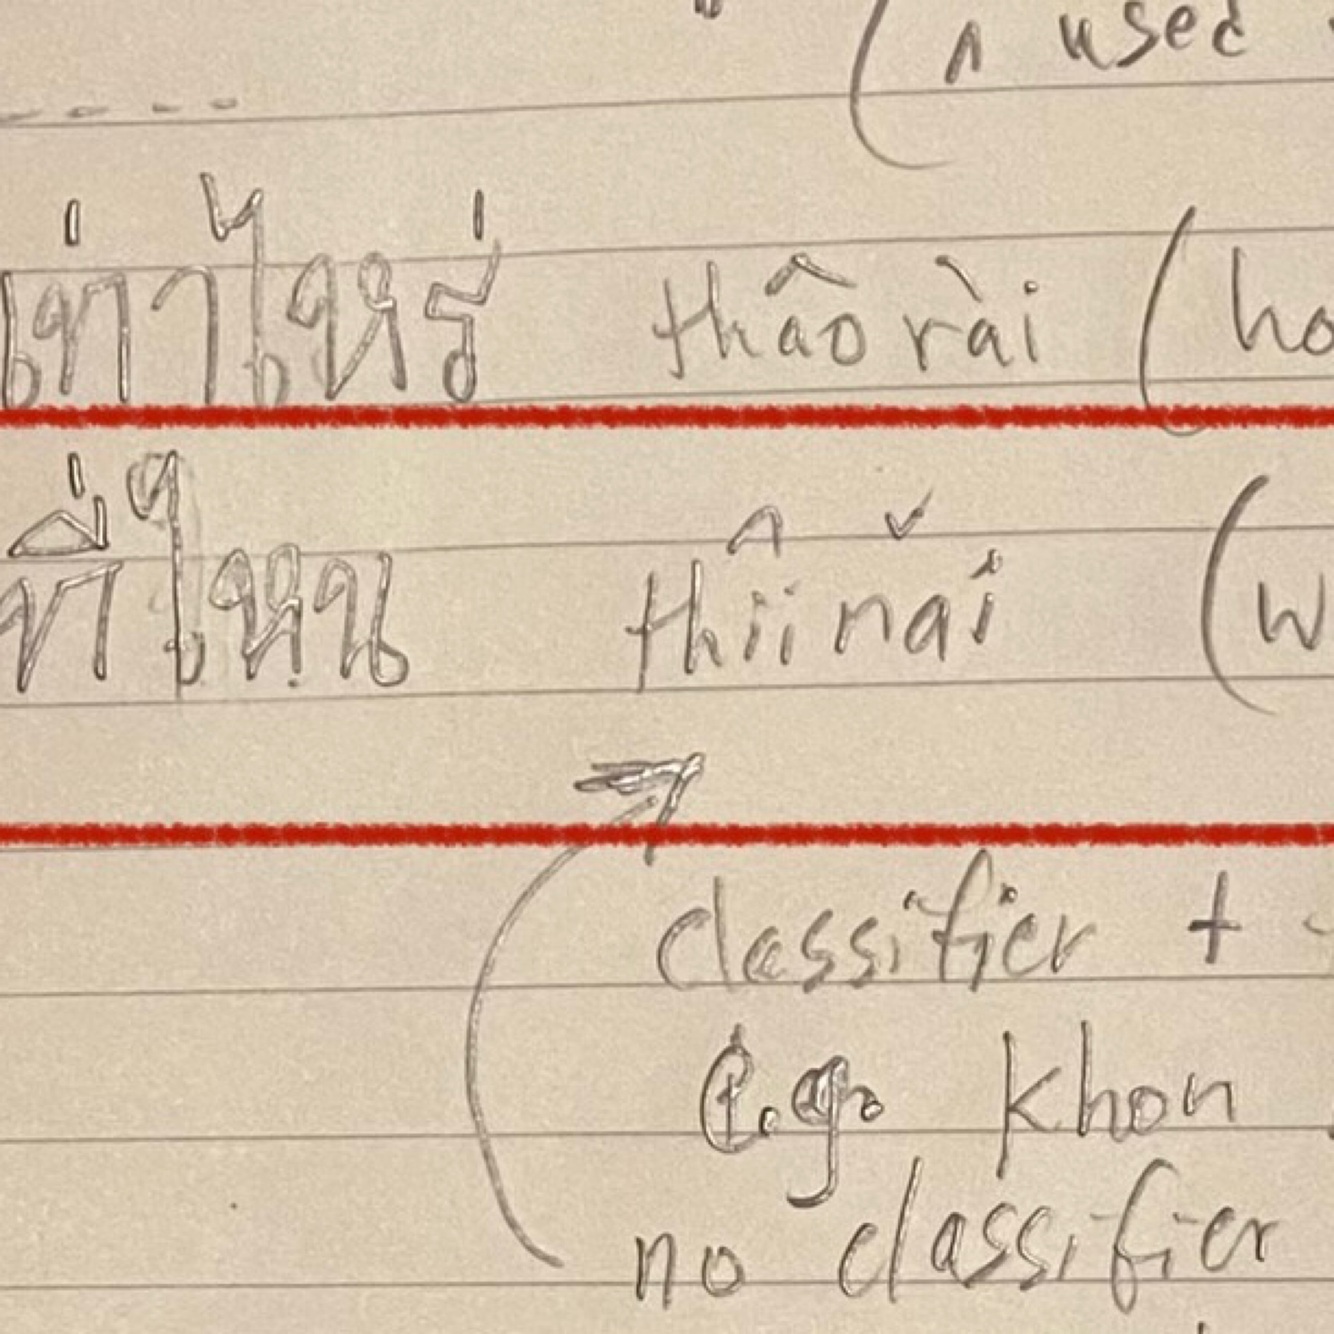 ( n used
เท่าไหร่ thâo rài ( ho
ที่ไหน thîi nǎi ( w
classifier +
e.g. khon
no classifier